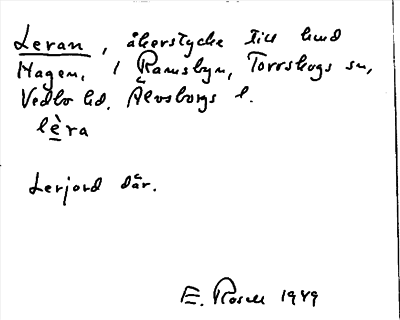 Leran, åkerstycke till hmd
Hagen, i Ramsbyn, Torrskogs sn,
Vedbo hd. Älvsborgs l.
lèra
Lerjord där.
E. Rosell 1949